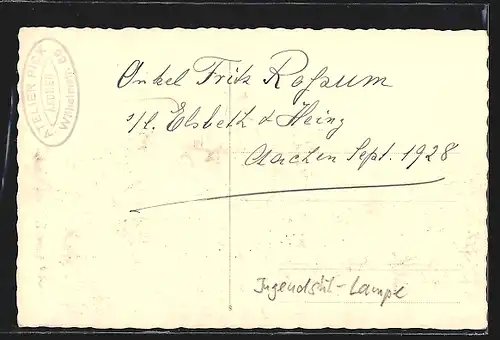 ATELIER PICK
AACHEN
Wilhelmstr. 60
Onkel Fritz Roßum
Elsbeth & Heinz
Aachen Sept. 1928
Jugendstil-Lampe